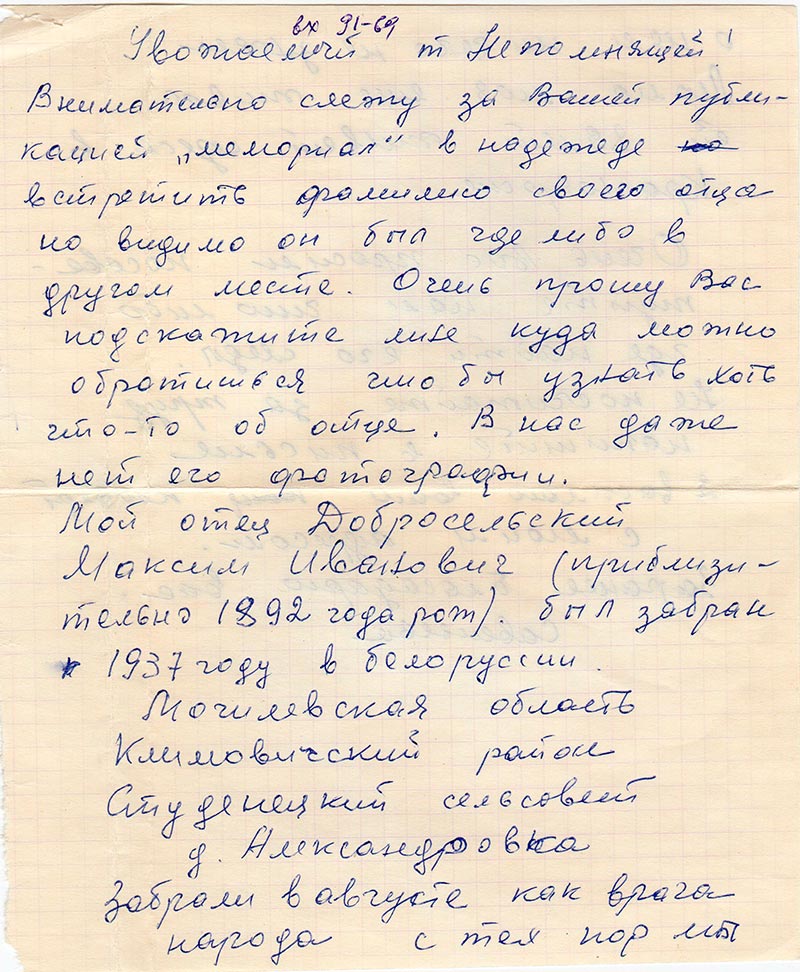 вх 91-69
Уважаемый т Непомнящей!
Внимательно слежу за Вашей публи-
кацией „мемориал“ в надежеде но
встретить фамилию своего отца
но видимо он был где либо в
другом месте. Очень прошу Вас
подскажите мне куда можно
обратишься что бы узнать хоть
что-то об отце. В нас даже
нет его фотографии.
Мой отец Добросельский
Максим Иванович (приблизи-
тельно 1892 года рож). был забран
в 1937 году в белоруссии.
Могилевская область
Климовичский район
Студенецкий сельсовет
д. Александровка
Забрали в августе как врага
народа с тех пор мы